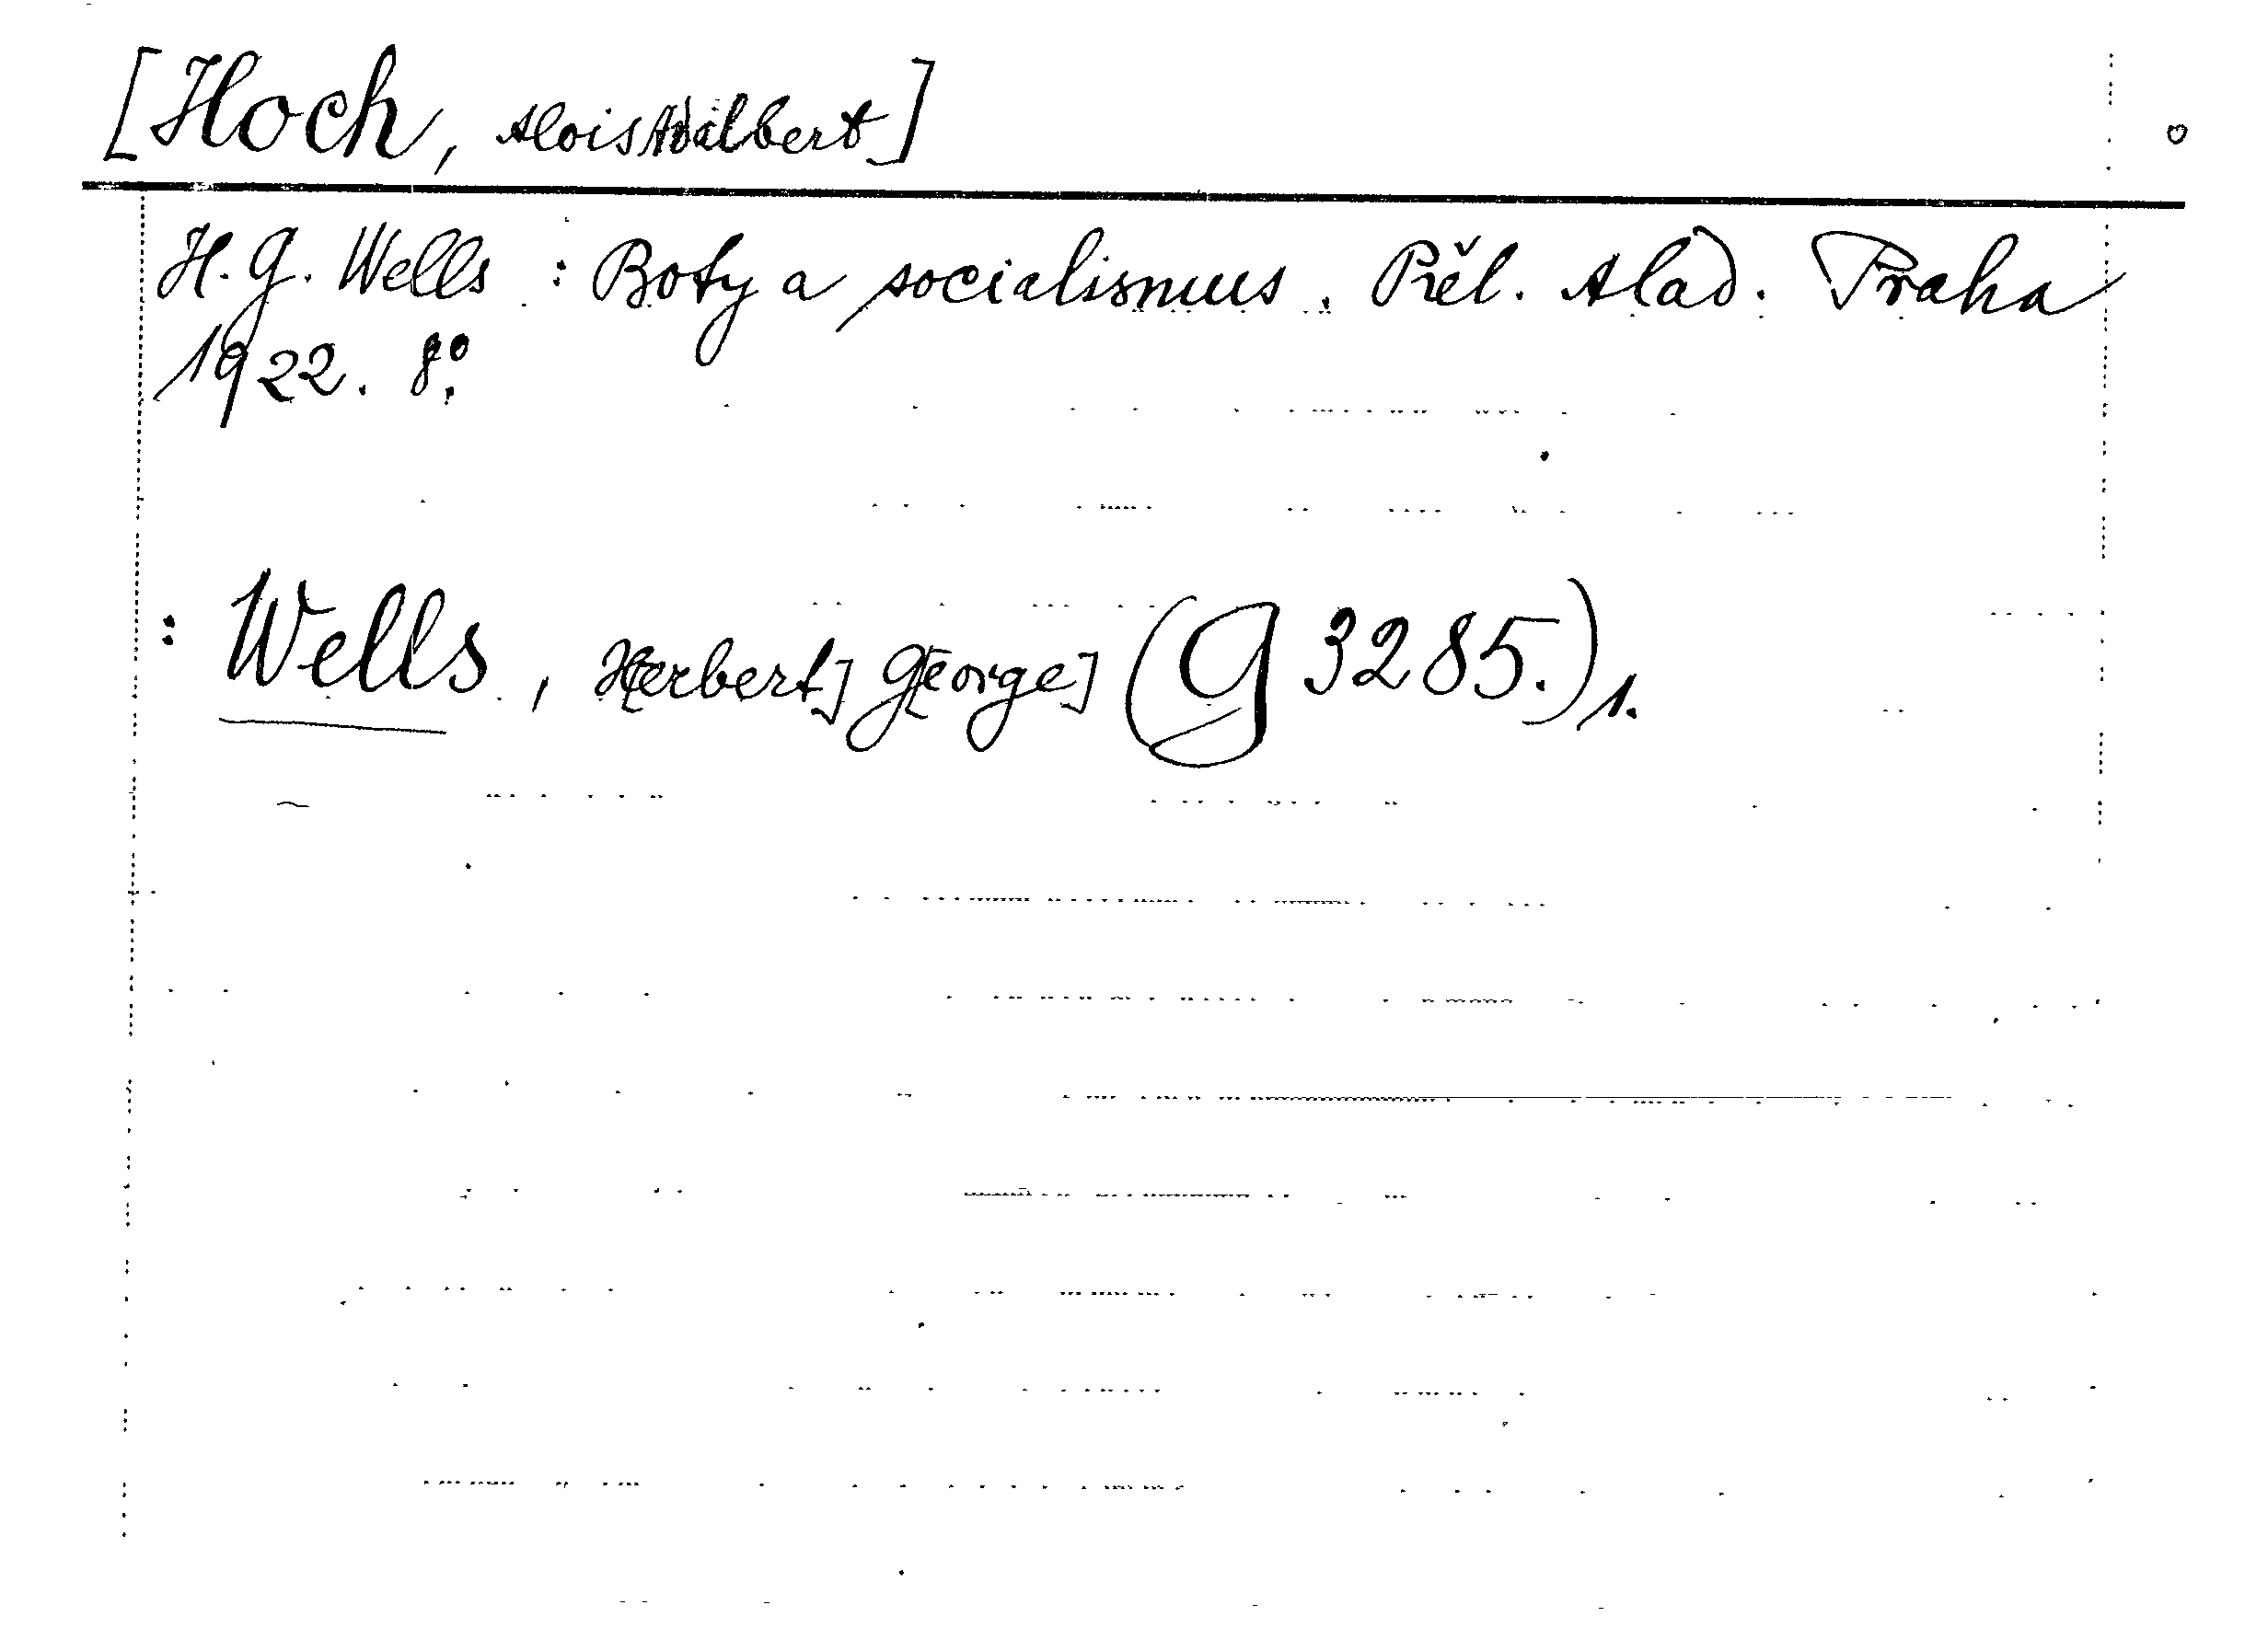 [Hoch, Alois Adalbert]
H. G. Wells : Boty a socialismus. Přel. Alad. Praha
1922. 8°.
: Wells, H[erbert] G[eorge] (G 3285.) 1.